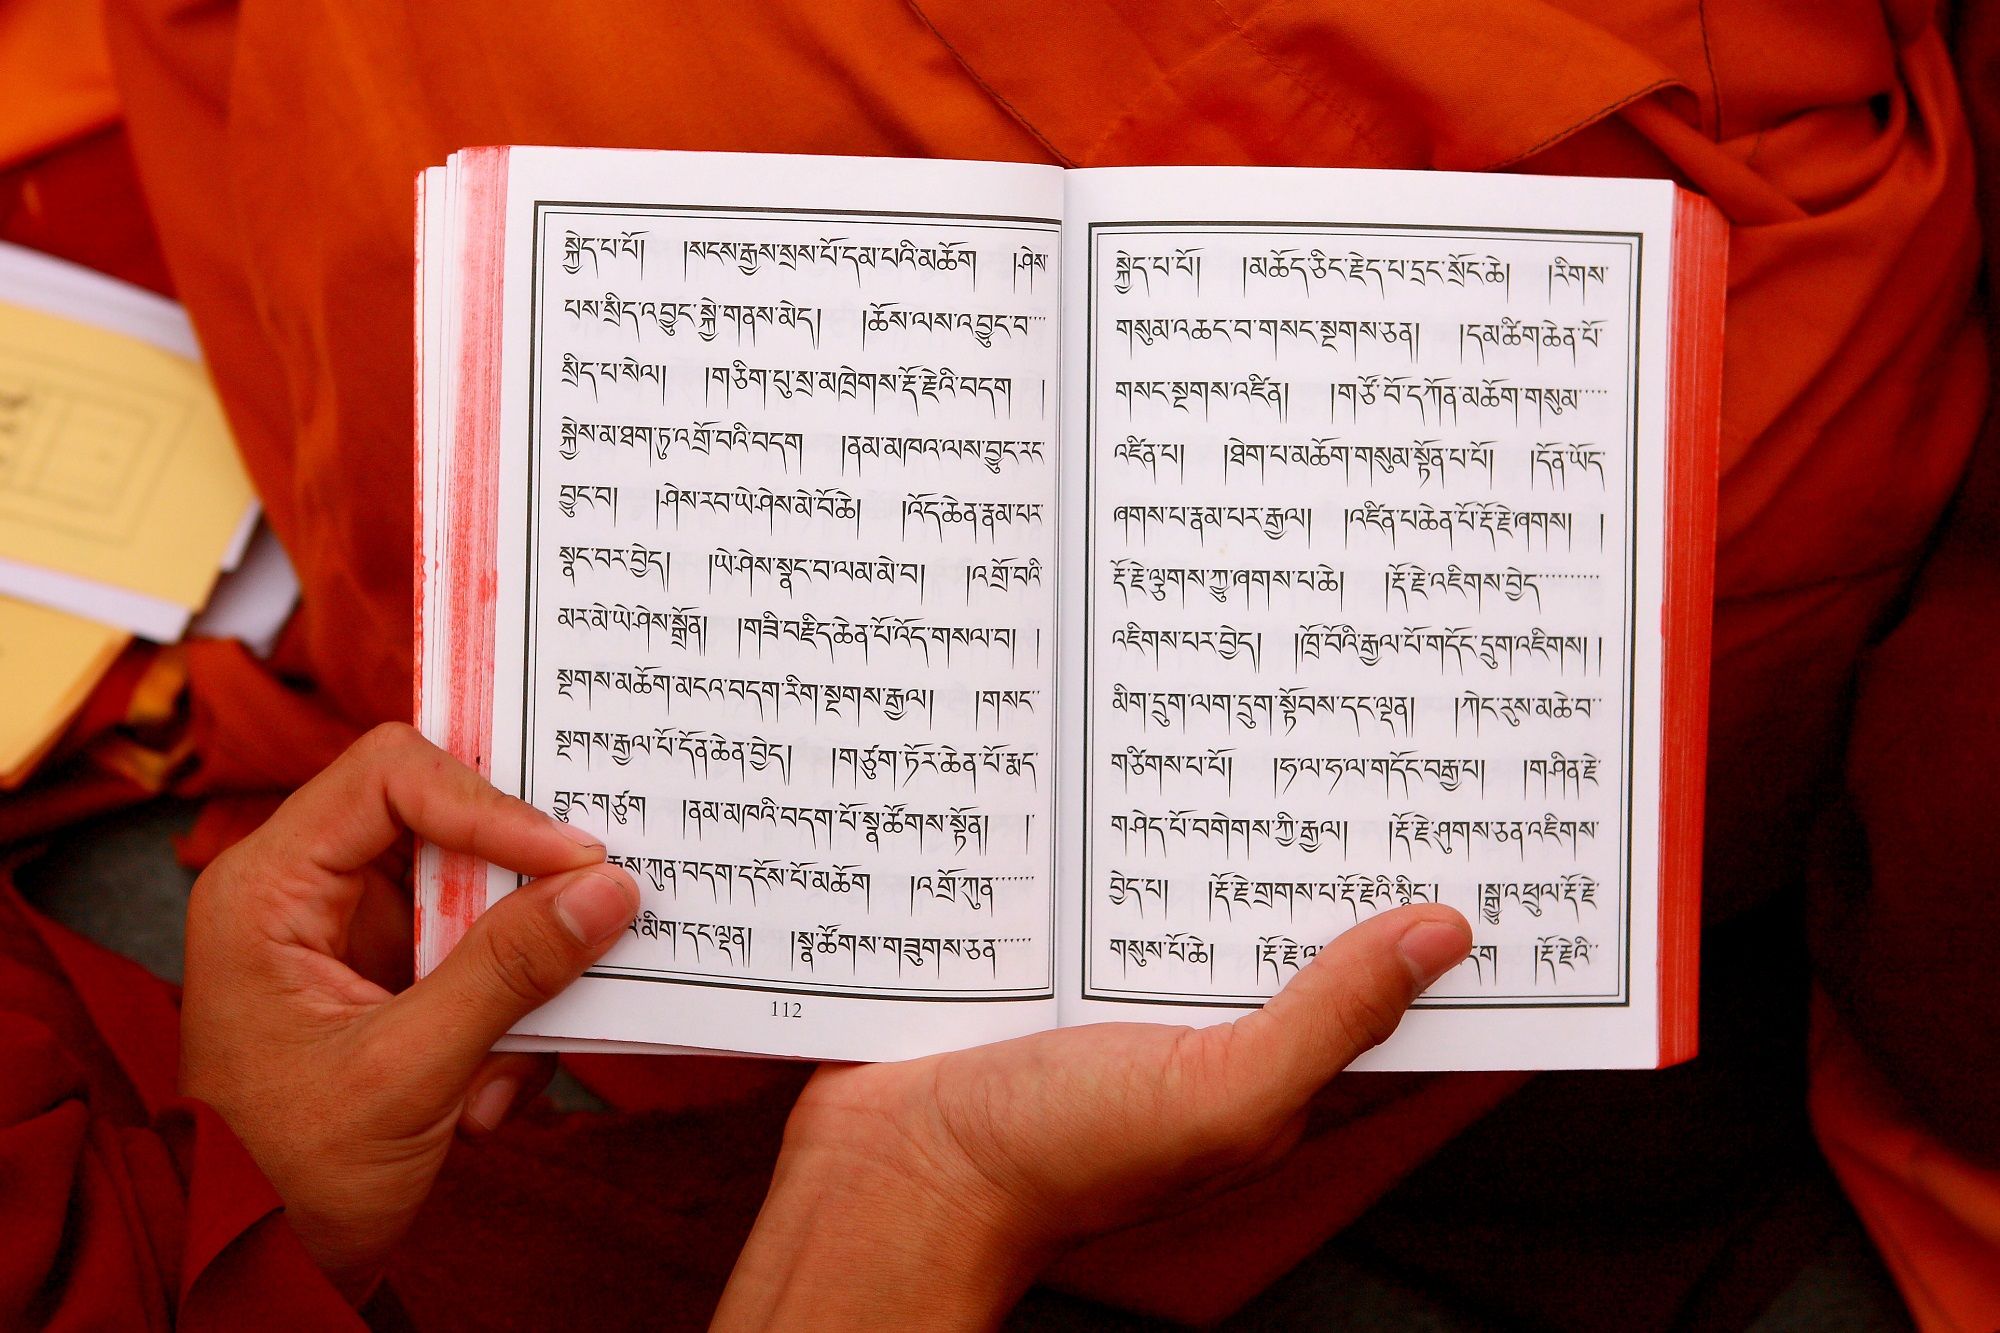 སྐྱེད་པ་པོ། །སངས་རྒྱས་སྲས་པོ་དམ་པའི་མཆོག །ཤེས་
པས་སྲིད་འབྱུང་སྐྱེ་གནས་མེད། །ཆོས་ལས་འབྱུང་བ་
སྲིད་པ་སེལ། །གཅིག་པུ་སྲ་མཁྲེགས་རྡོ་རྗེའི་བདག །
སྐྱེས་མ་ཐག་ཏུ་འགྲོ་བའི་བདག །ནམ་མཁའ་ལས་བྱུང་རང་
བྱུང་བ། །ཤེས་རབ་ཡེ་ཤེས་མེ་བོ་ཆེ། །འོད་ཆེན་རྣམ་པར་
སྣང་བར་བྱེད། །ཡེ་ཤེས་སྣང་བ་ལམ་མེ་བ། །འགྲོ་བའི་
མར་མེ་ཡེ་ཤེས་སྒྲོན། །གཟི་བརྗིད་ཆེན་པོ་འོད་གསལ་བ། །
སྔགས་མཆོག་མངའ་བདག་རིག་སྔགས་རྒྱལ། །གསང་
སྔགས་རྒྱལ་པོ་དོན་ཆེན་བྱེད། །གཙུག་ཏོར་ཆེན་པོ་རྨད་
བྱུང་གཙུག །ནམ་མཁའི་བདག་པོ་སྣ་ཚོགས་སྟོན། །
ཀུན་བདག་དངོས་པོ་མཆོག །འགྲོ་ཀུན་
མིག་དང་ལྡན། །སྣ་ཚོགས་གཟུགས་ཅན་
112
སྐྱེད་པ་པོ། །མཆོད་ཅིང་རྗེད་པ་དྲང་སྲོང་ཆེ། །རིགས་
གསུམ་འཆང་བ་གསང་སྔགས་ཅན། །དམ་ཚིག་ཆེན་པོ་
གསང་སྔགས་འཛིན། །གཙོ་བོ་དཀོན་མཆོག་གསུམ་
འཛིན་པ། །ཐེག་པ་མཆོག་གསུམ་སྟོན་པ་པོ། །དོན་ཡོད་
ཞགས་པ་རྣམ་པར་རྒྱལ། །འཛིན་པ་ཆེན་པོ་རྡོ་རྗེ་ཞགས། །
རྡོ་རྗེ་ལྕུགས་ཀྱུ་ཞགས་པ་ཆེ། །རྡོ་རྗེ་འཇིགས་བྱེད་
འཇིགས་པར་བྱེད། །ཁྲོ་བོའི་རྒྱལ་པོ་གདོང་དྲུག་འཇིགས། །
མིག་དྲུག་ལག་དྲུག་སྟོབས་དང་ལྡན། །ཀེང་རུས་མཆེ་བ་
གཙིགས་པ་པོ། །ཧ་ལ་ཧ་ལ་གདོང་བརྒྱ་པ། །གཤིན་རྗེ་
གཤེད་པོ་བགེགས་ཀྱི་རྒྱལ། །རྡོ་རྗེ་ཤུགས་ཅན་འཇིགས་
བྱེད་པ། །རྡོ་རྗེ་གྲགས་པ་རྡོ་རྗེའི་སྙིང་། །སྒྱུ་འཕྲུལ་རྡོ་རྗེ་
གསུས་པོ་ཆེ། །རྡོ་རྗེ །རྡོ་རྗེའི་